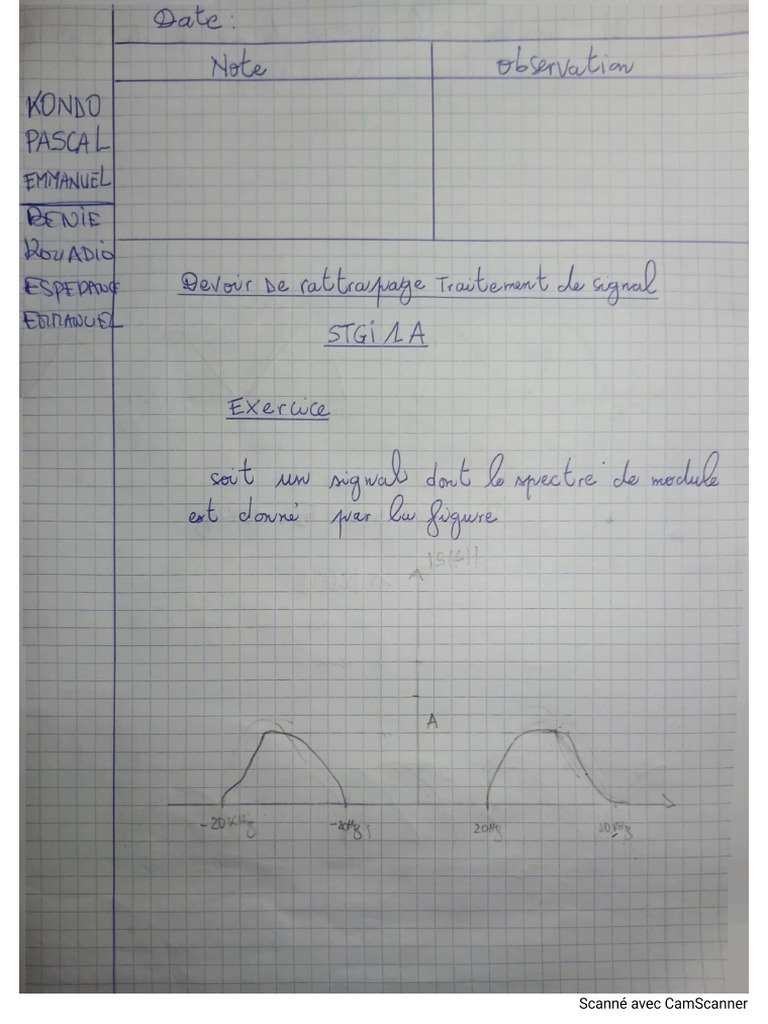 Date :
Note
Observation
KONDO
PASCAL
EMMANUEL
BENIE
KOUADIO
ESPERANCE
EMMANUEL
Devoir De rattrapage Traitement de signal
STGi 1A
Exercice
soit un signal dont le spectre de module
est donné par la figure
|S(f)|
A
-20KHz
-20Hz
20Hz
20KHz
Scanné avec CamScanner